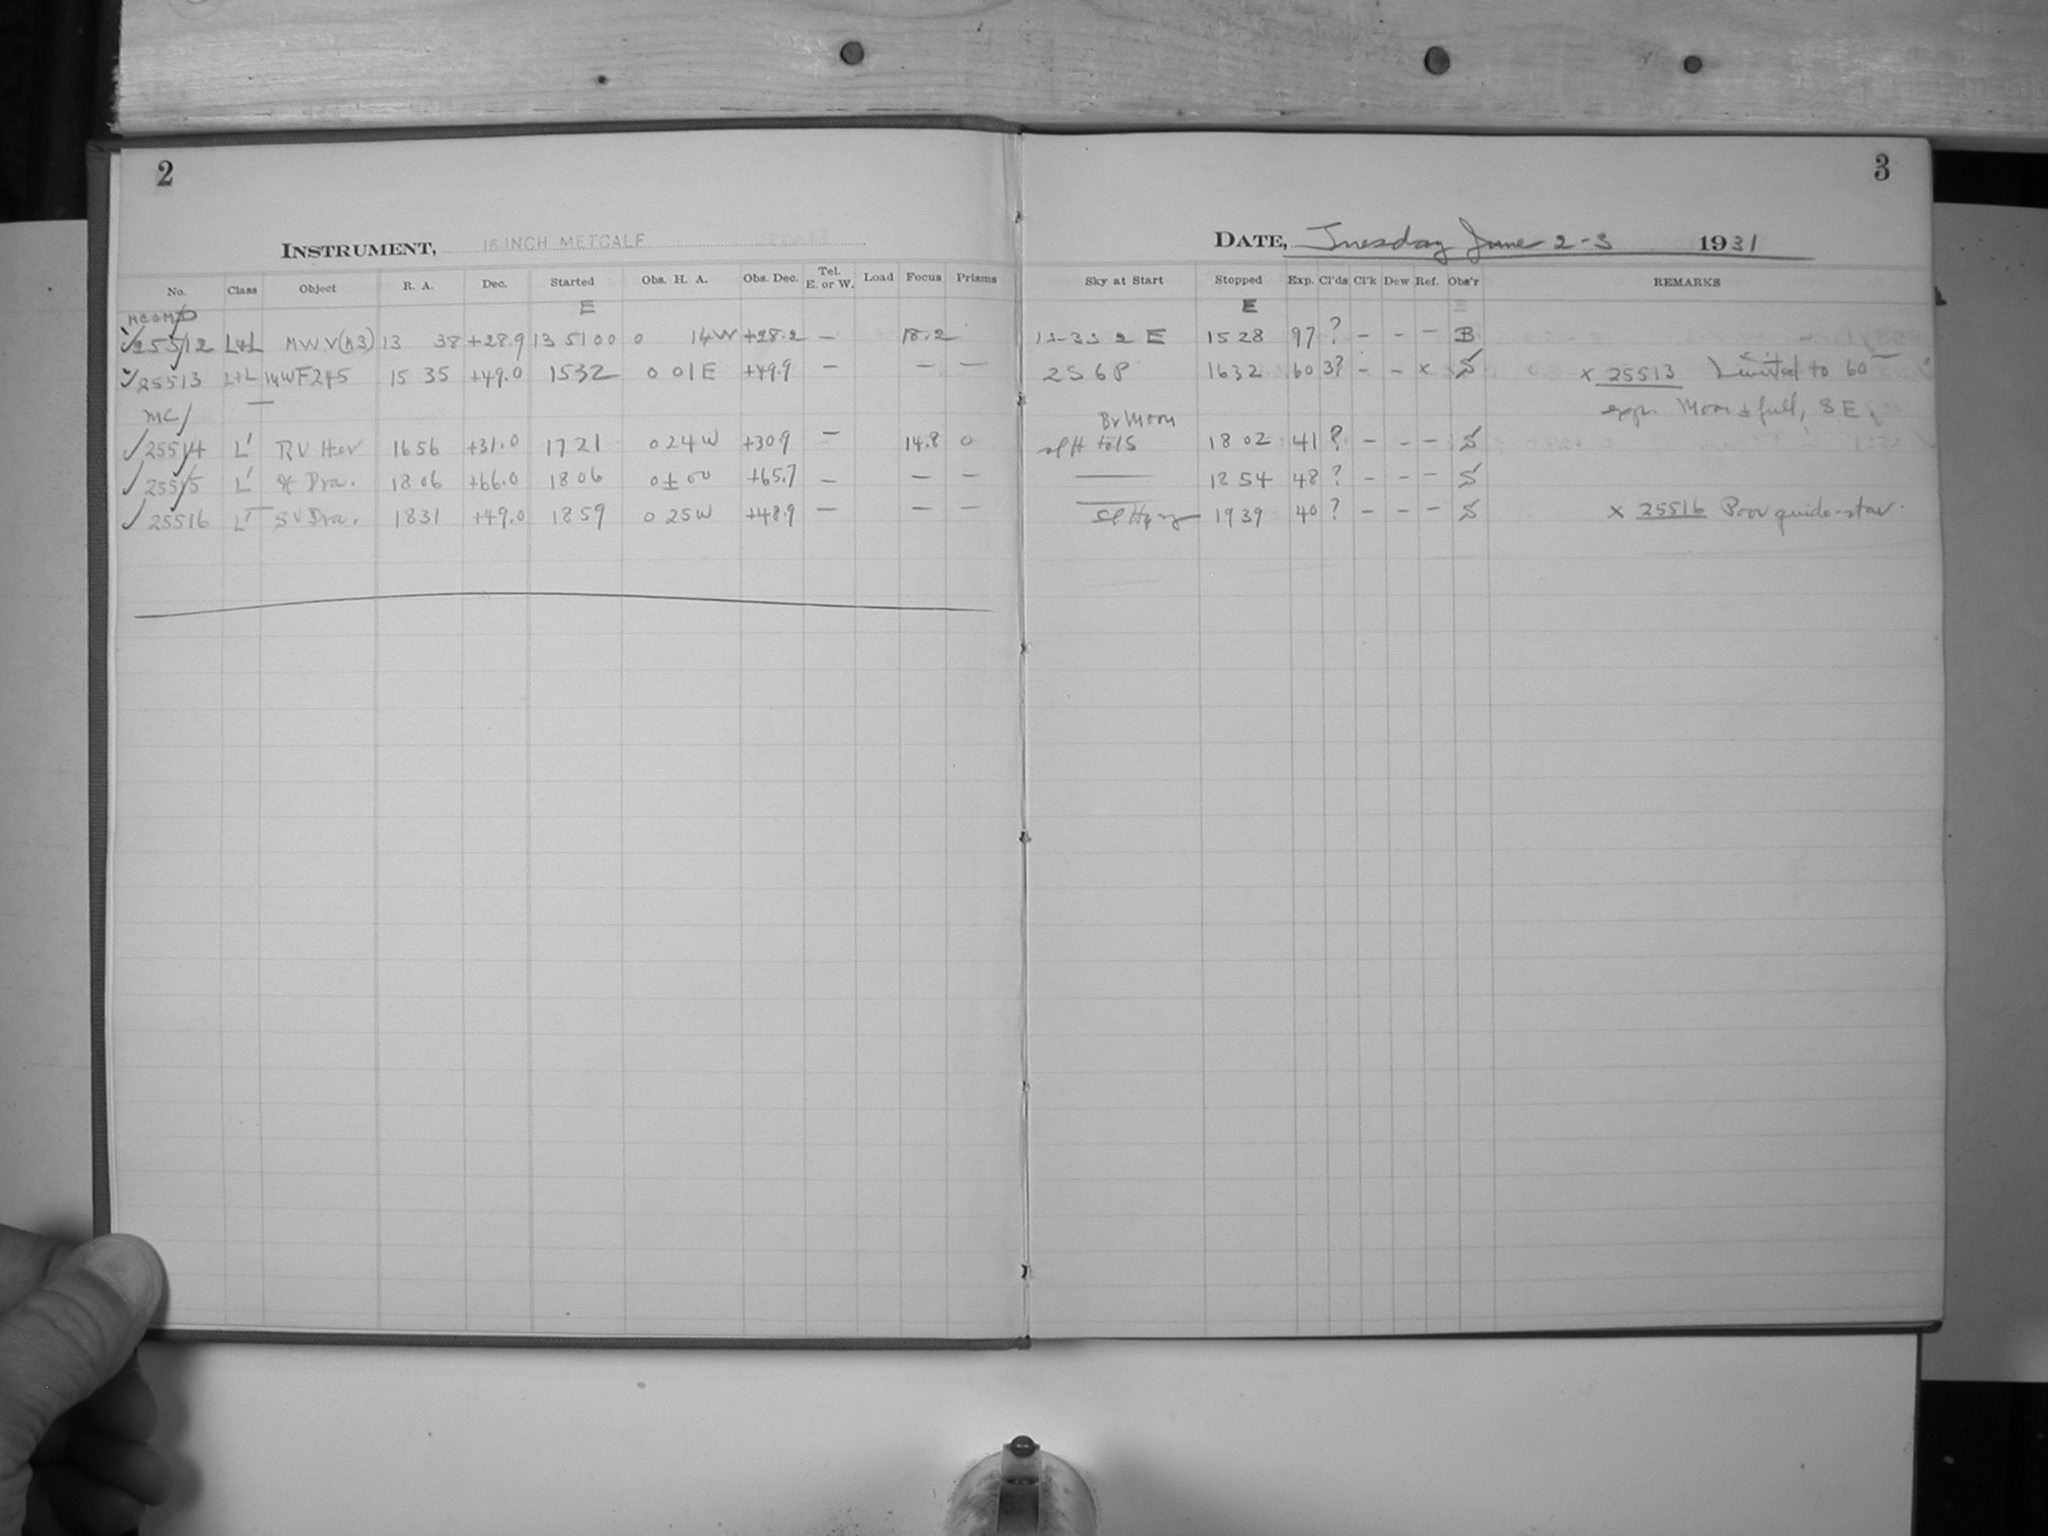 2
INSTRUMENT, 16 INCH METCALF
No. Class Object R. A. Dec. Started Obs. H. A. Obs. Dec. Tel. E. or W. Load Focus Prisms
E
25512 L+L MWV(n3) 13 38 +28.9 13 51 00 0 14W +28.2 — 18.2
25513 L+L MWF245 15 35 +49.0 1532 0 01E +49.9 — — —
MC
25514 L' RV Her 1656 +31.0 1721 0 24W +30.9 — 14.8 0
25515 L' Dra. 1806 +66.0 1806 0±00 +65.7 — — —
25516 L' SV Dra. 1831 +49.0 1859 0 25W +48.9 — — —
3
DATE, Tuesday June 2-3 1931
Sky at Start Stopped Exp. Cl'ds Cl'k Dew Ref. Obs'r REMARKS
E
2 E 1528 97 ? - - - B
2S6P 1632 60 3? - - x S x 25513 Limited to 60
exp. Moon ± full, SE.
Br Moon
1802 41 ? - - - S
—— 1854 48 ? - - - S
1939 40 ? - - - S x 25516 Poor guide-star.